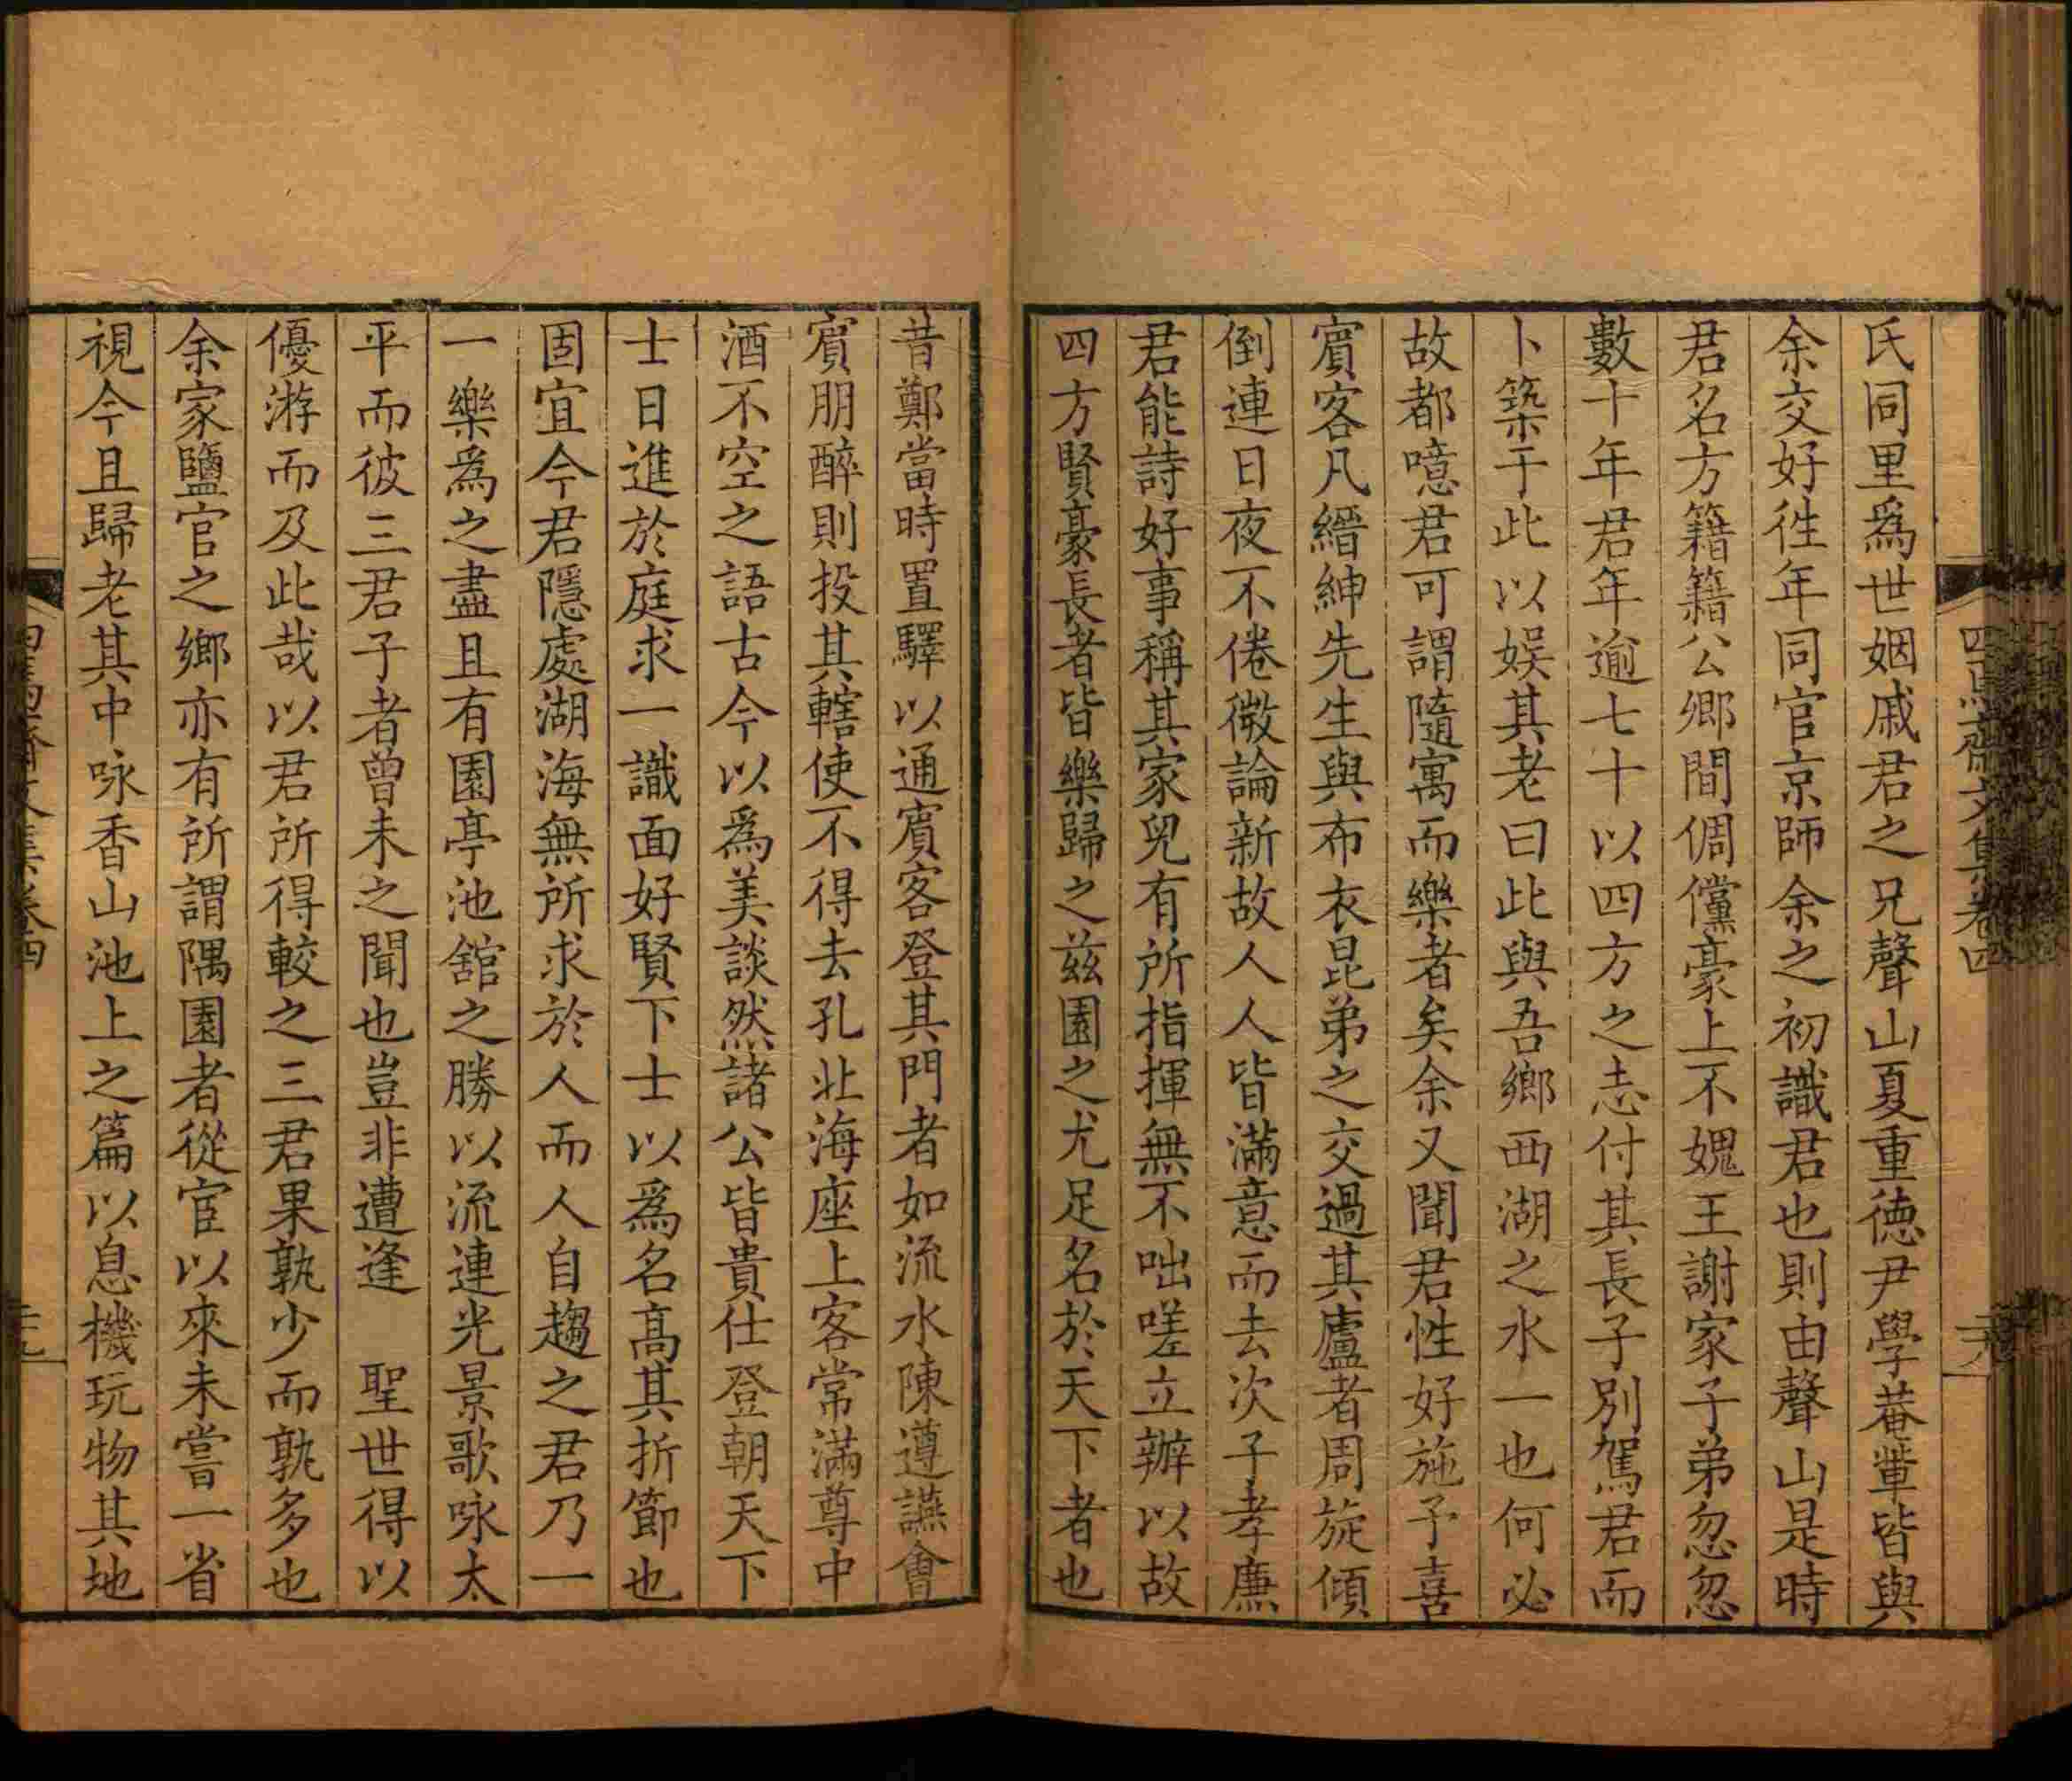 氏同里爲世姻戚君之兄聲山夏重德尹學菴輩皆與
余交好徃年同官京師余之初識君也則由聲山是時
君名方籍籍公卿間倜儻豪上不媿王謝家子弟忽忽
數十年君年逾七十以四方之志付其長子別駕君而
卜築于此以娱其老曰此與吾鄉西湖之水一也何必
故都噫君可謂隨寓而樂者矣余又聞君性好施予喜
賓客凡縉紳先生與布衣昆弟之交過其廬者周旋傾
倒連日夜不倦微論新故人人皆滿意而去次子孝廉
君能詩好事稱其家兒有所指揮無不咄嗟立辦以故
四方賢豪長者皆樂歸之兹園之尤足名於天下者也
昔鄭當時置驛以通賓客登其門者如流水陳遵讌會
賓朋醉則投其轄使不得去孔北海座上客常滿尊中
酒不空之語古今以爲美談然諸公皆貴仕登朝天下
士日進於庭求一識面好賢下士以爲名高其折節也
固宜今君隱處湖海無所求於人而人自趨之君乃一
一樂爲之盡且有園亭池舘之勝以流連光景歌咏太
平而彼三君子者曾未之聞也豈非遭逢　聖世得以
優游而及此哉以君所得較之三君果孰少而孰多也
余家鹽官之鄉亦有所謂隅園者從宦以來未嘗一省
視今且歸老其中咏香山池上之篇以息機玩物其地